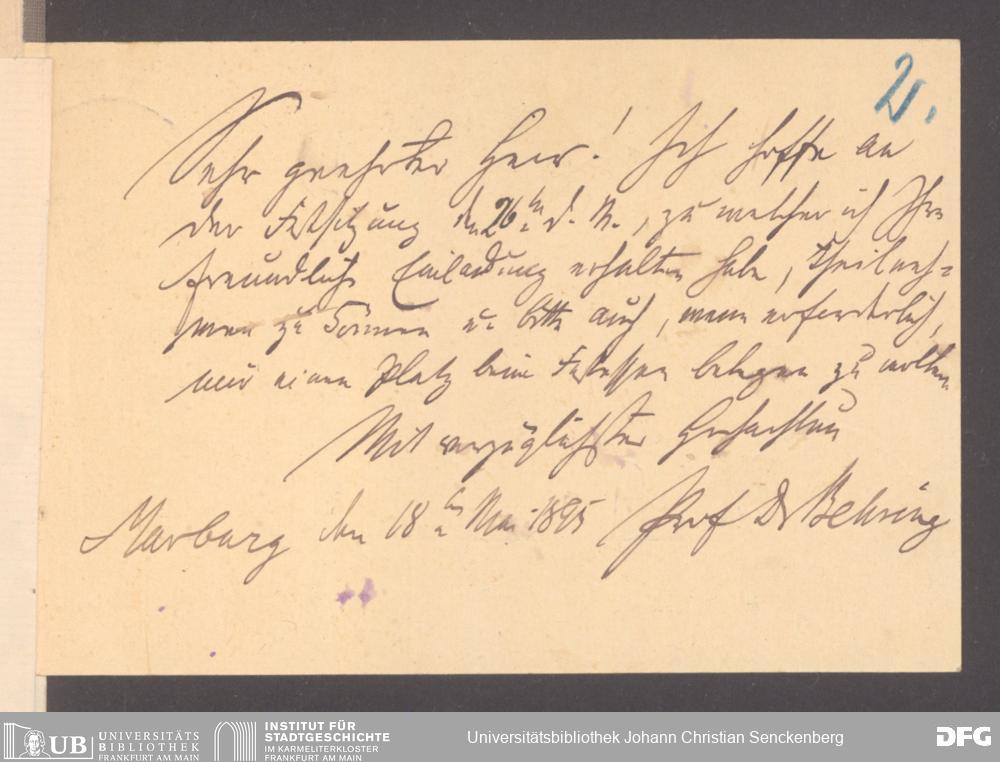 2.
Sehr geehrter Herr! Ich hoffe an
der Festsitzung den 26ten d. M., zu welcher ich Ihre
freundliche Einladung erhalten habe, theilneh-
men zu können u. bitte auch, wenn erforderlich,
mir einen Platz beim Festessen belegen zu wollen
Mit vorzüglichster Hochachtung
Marburg den 18ten Mai 1895 Prof Dr Behring
UB UNIVERSITÄTS
BIBLIOTHEK
FRANKFURT AM MAIN
INSTITUT FÜR
STADTGESCHICHTE
IM KARMELITERKLOSTER
FRANKFURT AM MAIN
Universitätsbibliothek Johann Christian Senckenberg
DFG